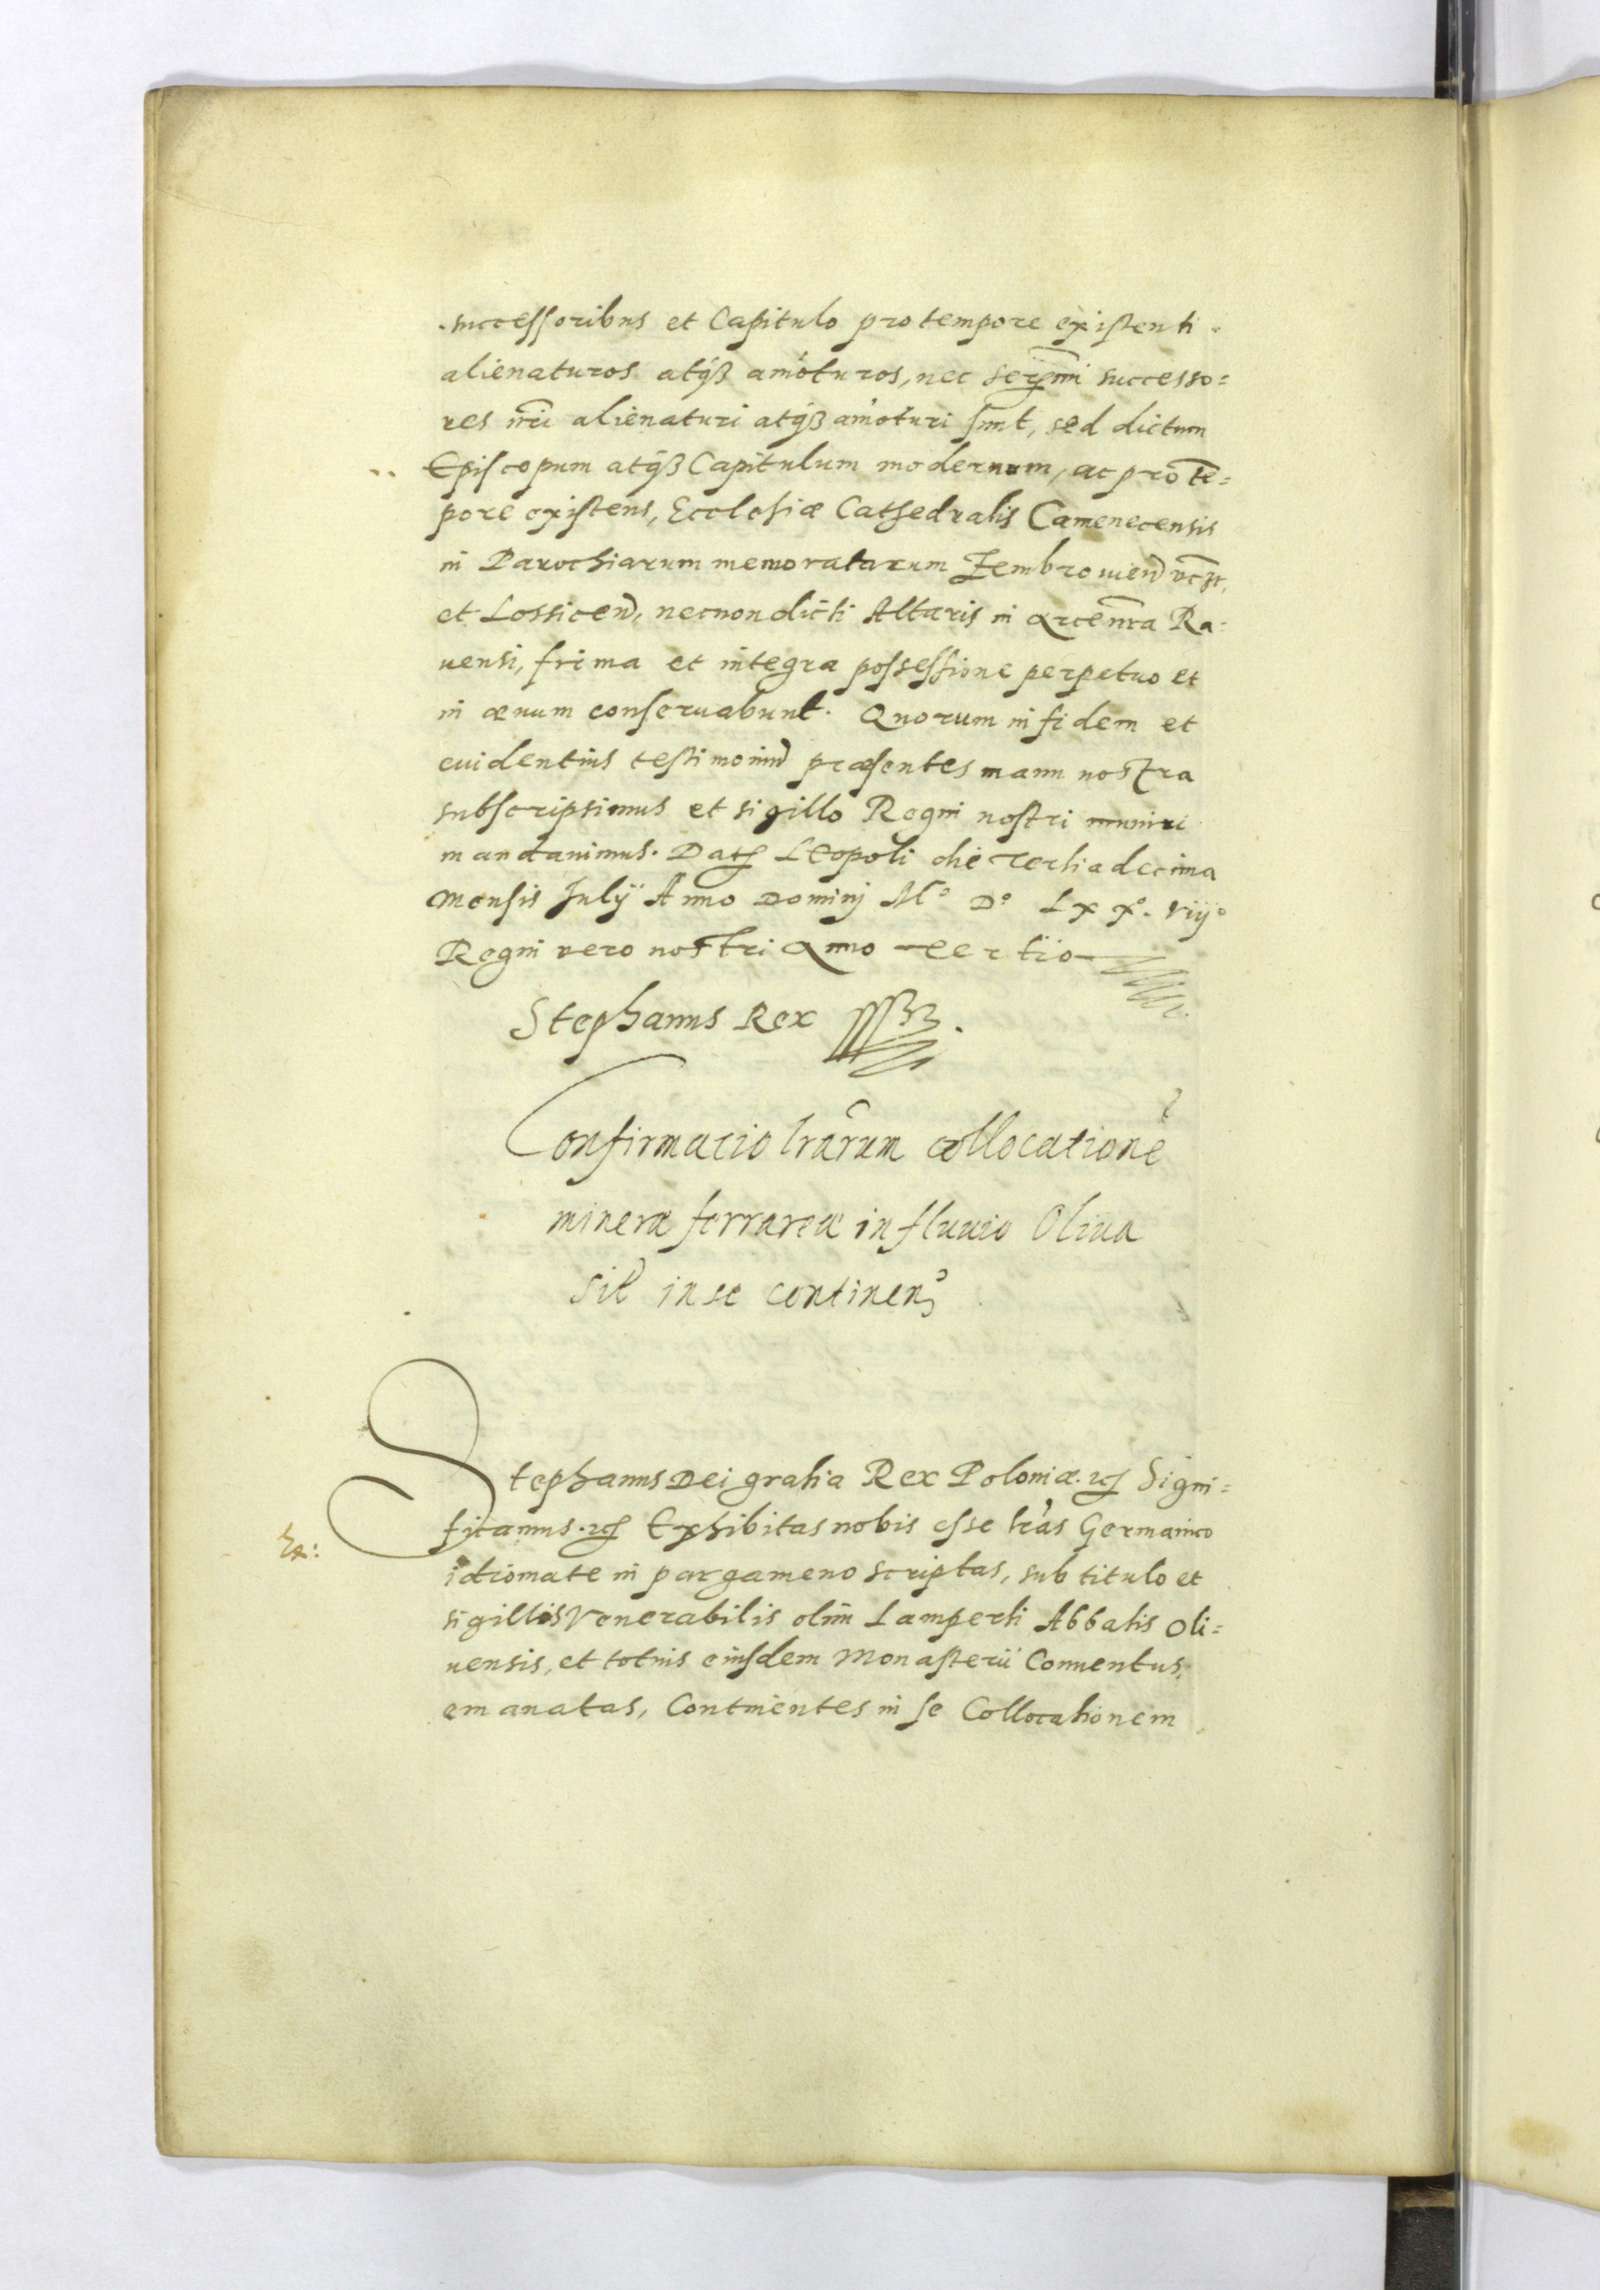 successoribus et Capitulo pro tempore existenti
alienaturos atq3 amoturos, nec serēmi successo=
res nr̄i alienaturi atq3 amoturi sunt, sed dictum
Episcopum atq3 Capitulum modernum, ac pro tē=
pore existens, Ecclesiæ Cathedralis Camenecensis
in Parochiarum memoratarum Zembrouien̄
et Lossicen̄, necnon dicti Altaris in Ra=
uensi, frima et integra possessione perpetuo et
in æuum conseruabunt. Quorum in fidem et
euidentius testimoniū præsentes manu nostra
subscripsimus et sigillo Regni nostri muniri
mandauimus. Datꝭ Leopoli die Tertia decima
Mensis Julÿ Anno Dominj M° D° Lxx°. viij°
Regni vero nostri Anno tertio
Stephanus Rex
Confirmatio lrārum collocationē
mineræ ferrareæ in fluuio Oliua
sit̄ in se continen̄
Stephanus Dei gratia Rex Poloniæ. ꝛcꝭ Signi=
ficamus. ꝛcꝭ Exhibitas nobis esse lrās Germanico
idiomate in pargameno scriptas, sub titulo et
sigillis Venerabilis olim Lamperti Abbatis Oli=
uensis, et totius eiusdem Monasterii Conuentus,
emanatas, Continentes in se Collocationem